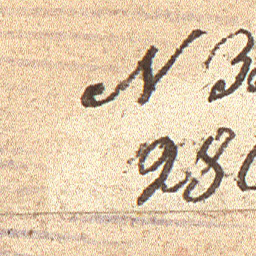 N 3
28